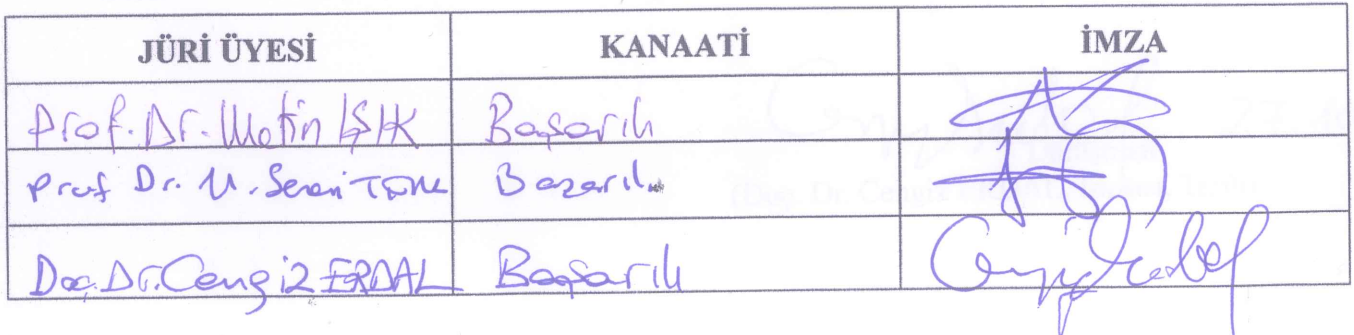 JÜRİ ÜYESİ KANAATİ İMZA
Prof. Dr. Metin IŞIK Başarılı
Prof Dr. Başarılı
Doç. Dr. Cengiz ERDAL Başarılı